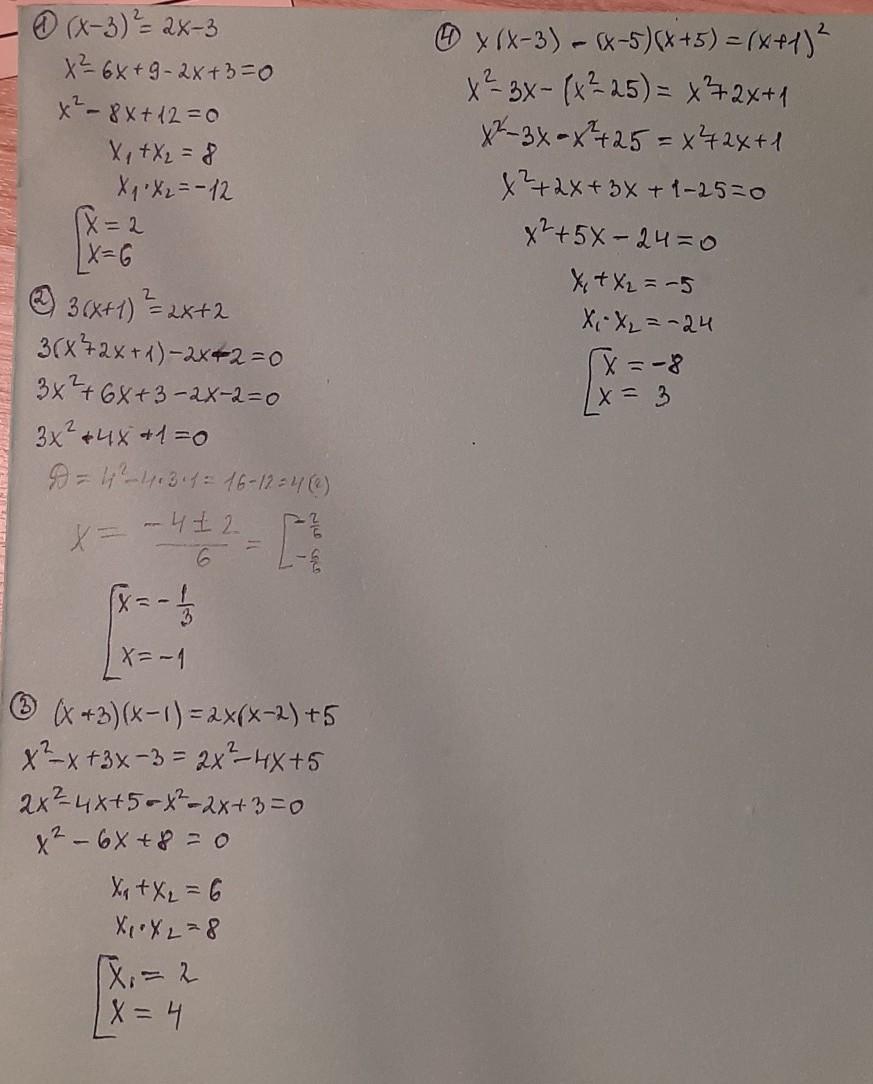 ① (x-3)² = 2x-3
x²-6x+9-2x+3=0
x²-8x+12=0
x₁+x₂=8
x₁·x₂=-12
[x=2
x=6
② 3(x+1)²=2x+2
3(x²+2x+1)-2x-2=0
3x²+6x+3-2x-2=0
3x²+4x+1=0
D=4²-4·3·1=16-12=4(2)
x= (-4±2)/6 = [-2/6
-6/6
[x=-1/3
x=-1
③ (x+3)(x-1)=2x(x-2)+5
x²-x+3x-3=2x²-4x+5
2x²-4x+5-x²-2x+3=0
x²-6x+8=0
x₁+x₂=6
x₁·x₂=8
[x₁=2
x=4
④ x(x-3)-(x-5)(x+5)=(x+1)²
x²-3x-(x²-25)=x²+2x+1
x²-3x-x²+25=x²+2x+1
x²+2x+3x+1-25=0
x²+5x-24=0
x₁+x₂=-5
x₁·x₂=-24
[x=-8
x=3